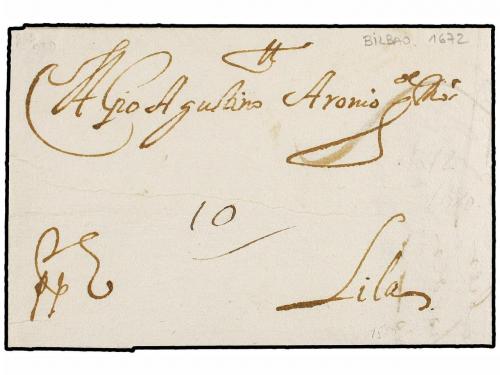 BILBAO. 1672
A Pio Agustino Aronio
10
Lila